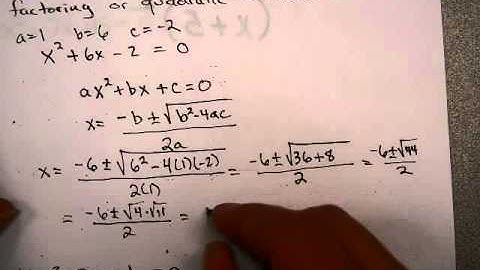 factoring or quadratic
a=1 b=6 c=-2
x² + 6x - 2 = 0
ax² + bx + c = 0
x = (-b ± √(b²-4ac))/(2a)
x = (-6 ± √(6² - 4(1)(-2)))/(2(1)) = (-6 ± √(36+8))/2 = (-6 ± √44)/2
= (-6 ± √4 · √11)/2 =